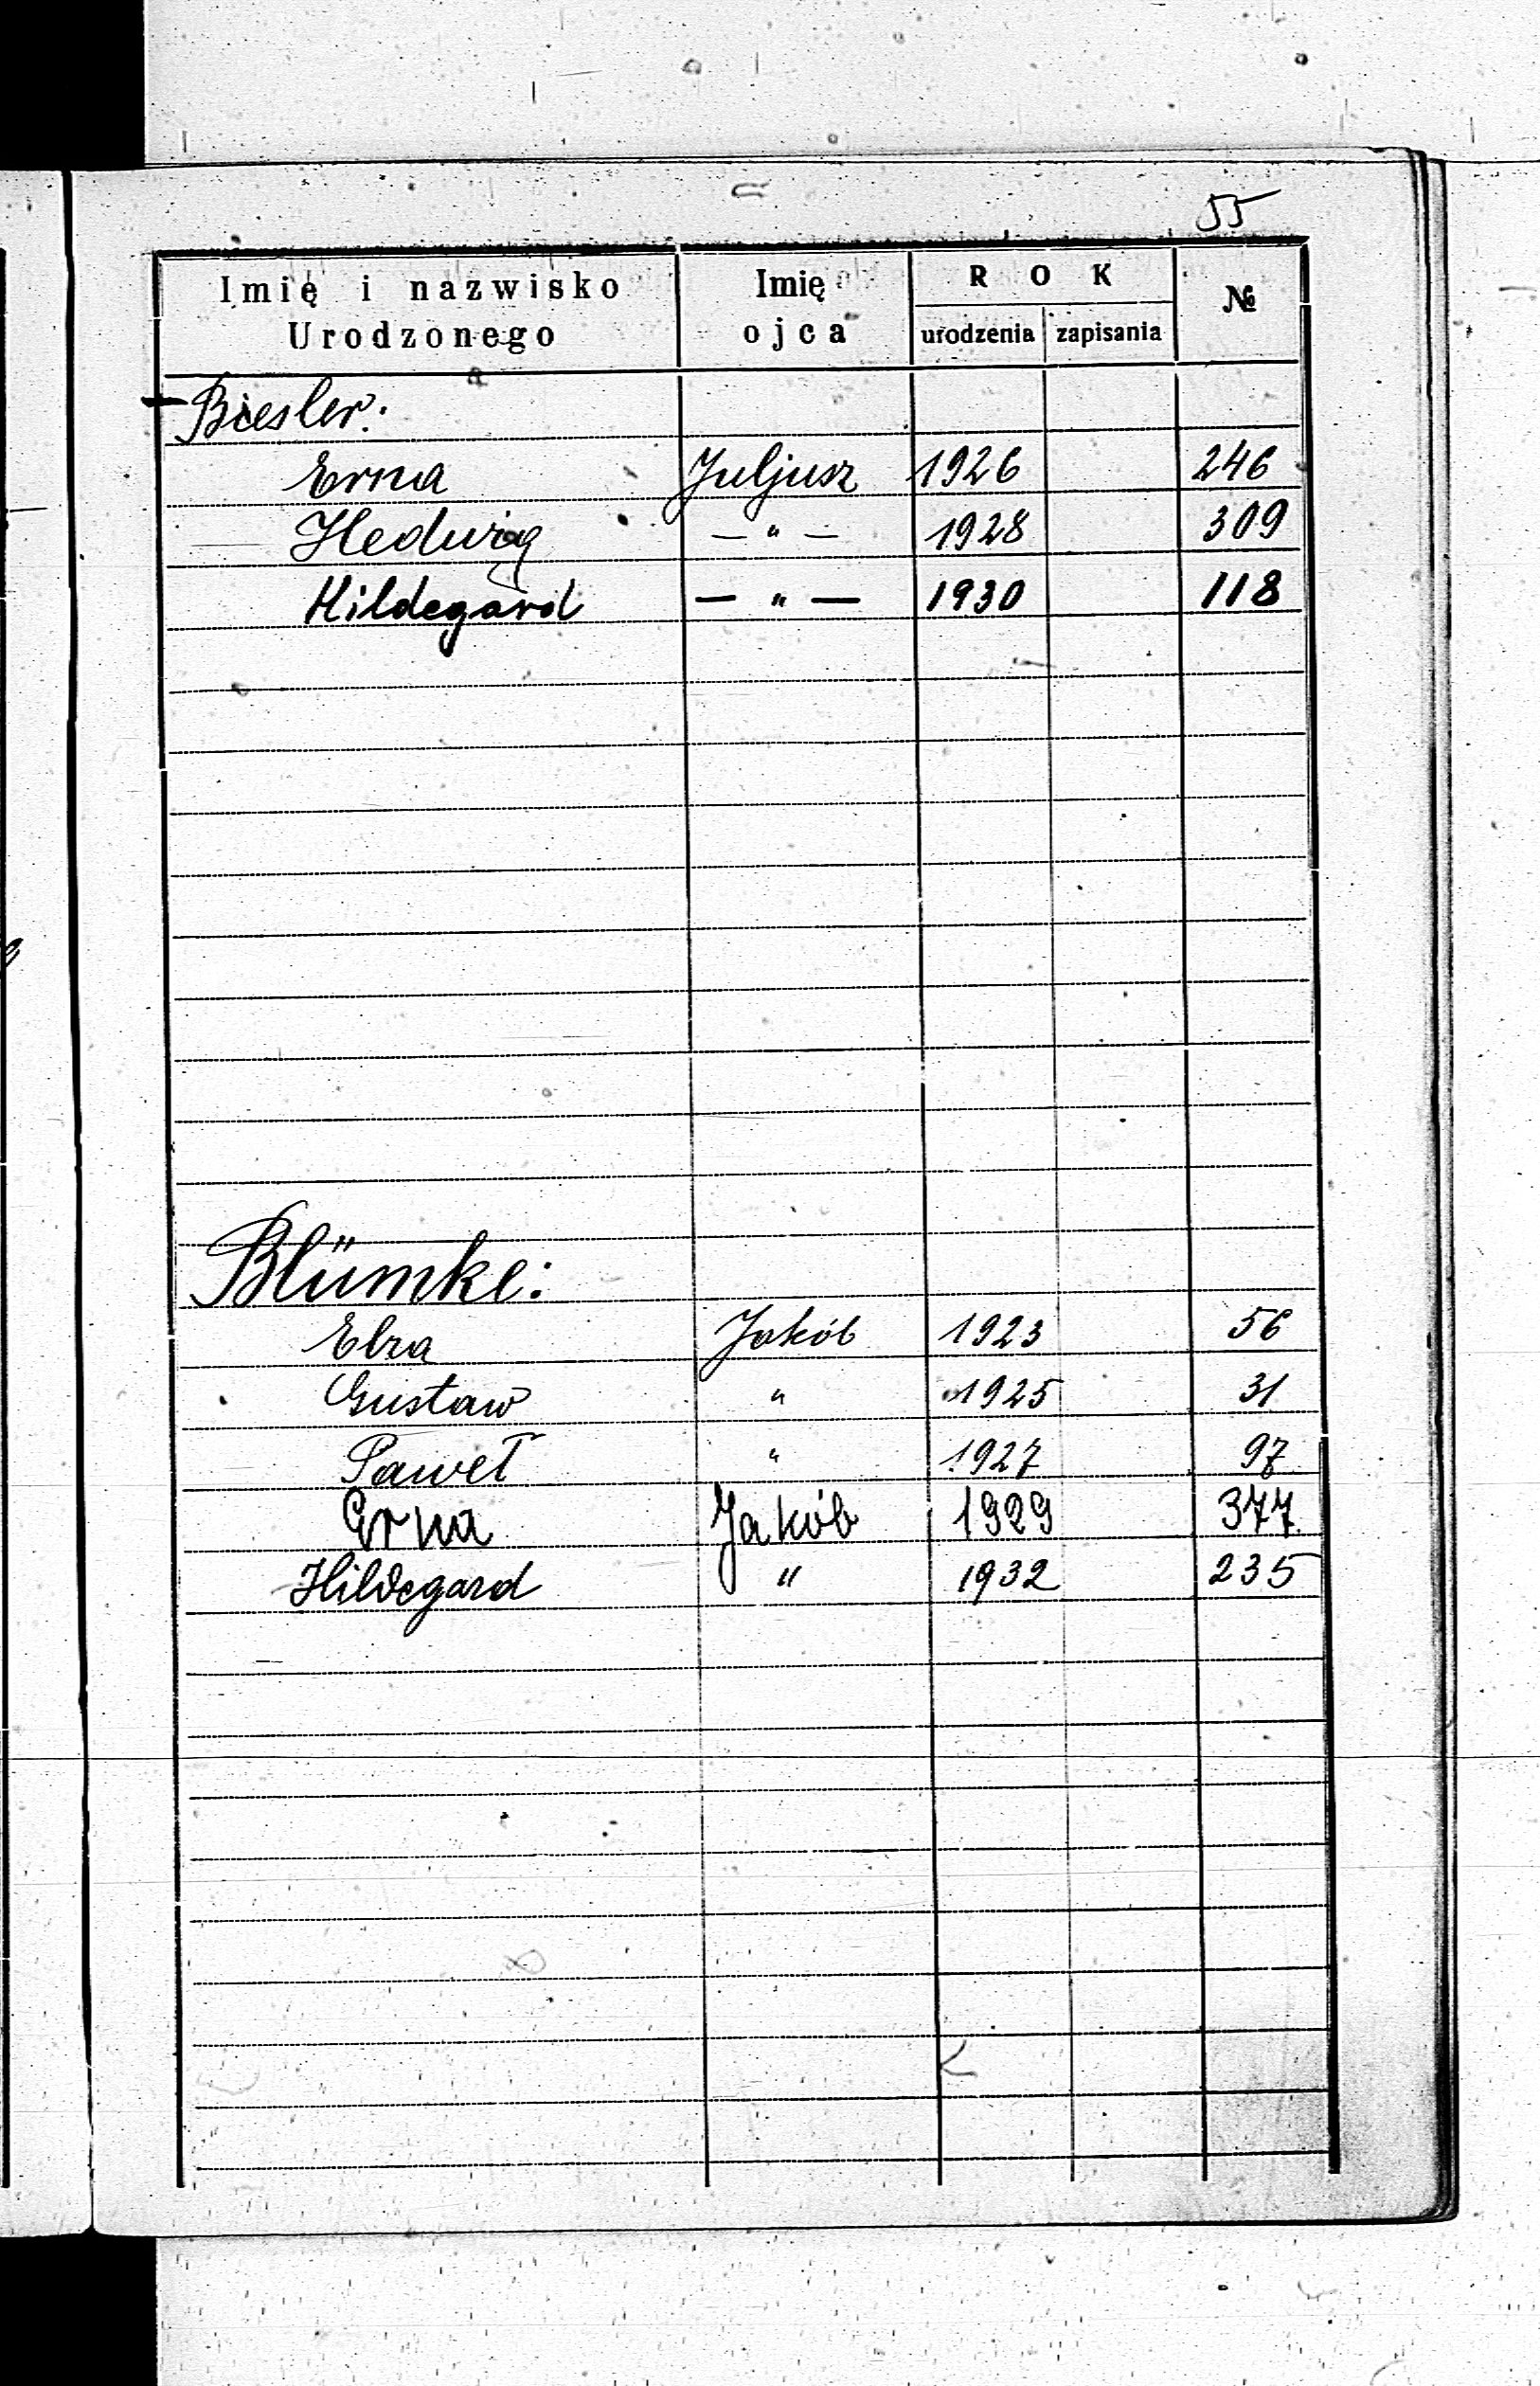 55
Imię i nazwisko Urodzonego Imię ojca ROK urodzenia zapisania №
Biesler:
Erna Juljusz 1926 246
Hedwig — " — 1928 309
Hildegard — " — 1930 118
Blümke:
Elza Jakób 1923 56
Gustaw " 1925 31
Paweł " 1927 97
Erna Jakób 1929 377
Hildegard " 1932 235